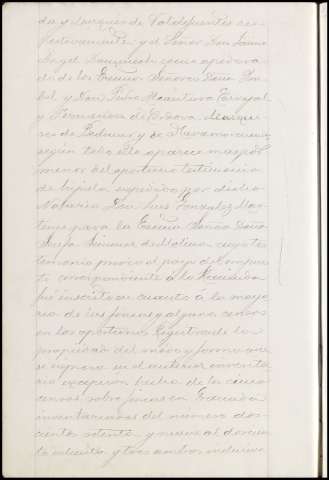 da y Marqués de Valdefuentes res-
pectivamente y el Señor Don Jaime
Angel como apodera-
do de los Excmos Señores Doña
y Don Pedro Alcántara
y Fernandez de Córdova Marque-
ses de y de
según todo ello aparece mas por
menor del oportuno testimonio
de hijuela expedido por dicho
Notario Don Luis Gonzalez Mar-
tinez para la Excma Señora Doña
Josefa de Molina cuyo tes-
timonio previo el pago del impues-
to correspondiente á la Hacienda
fue inscrito en cuanto á la mayo-
ria de las fincas y algunos censos
en los oportunos Registros de la
propiedad del modo y forma que
se expresa en el anterior inventa-
rio excepcion hecha de los cinco
censos sobre fincas en
inventariados del número dos-
cientos ochenta y nueve al doscien-
tos noventa y tres ambos inclusive